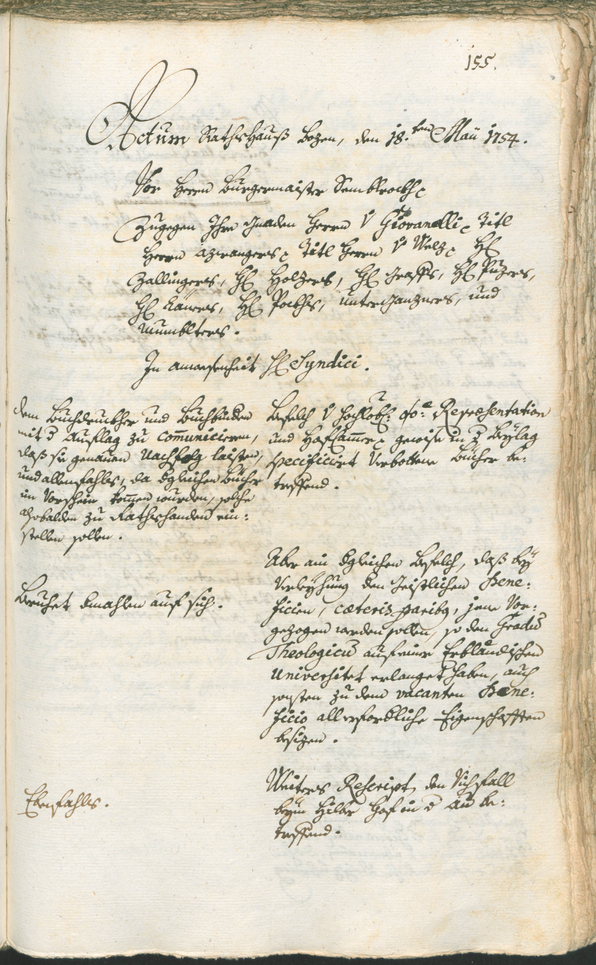 155.
Actum Rathshauß Bozen, den 18.ten Maii 1754.
Vor Herrn Burgermaister
Zugegen Ihro Gnaden Herrn V Giovanelli, Titl
Herrn Titl Herrn V Welz, H
Zallingers, H Holzers, H H
H H und

In anwesenheit H Syndici.
dem Buchdruckher und Buchbinder
mit Auflag zu comuniciren,
daß sie genauen Nachfolg laisten,
und allenfahls, da dgleichen Bücher
in Vorschein kommen wurden, solche
alsobalden zu Rathshanden ein=
stellen sollen.
Befelch V Hochlobl: Representation
und Hofcammer gewise in d Beylag
specificirt verbottene Bücher be=
treffend.
Beruhet dmahlen auf sich.
Aber ain dgleichen Befelch, daß bey
Verleyhung den Geistlichen Bene=
ficien, cæteris paribq, jene Vor=
gezogen werden sollen, so den Gradū
Theologicū auf einer Erbländischen
Universitet erlanget haben, auch
sonsten zu dem vacanten Bene=
ficio all erfordliche Eigenschafften
besizen.
Ebenfahls.
Weiters Rescript, den Vichfall
beym Hof in d Au be=
treffend.